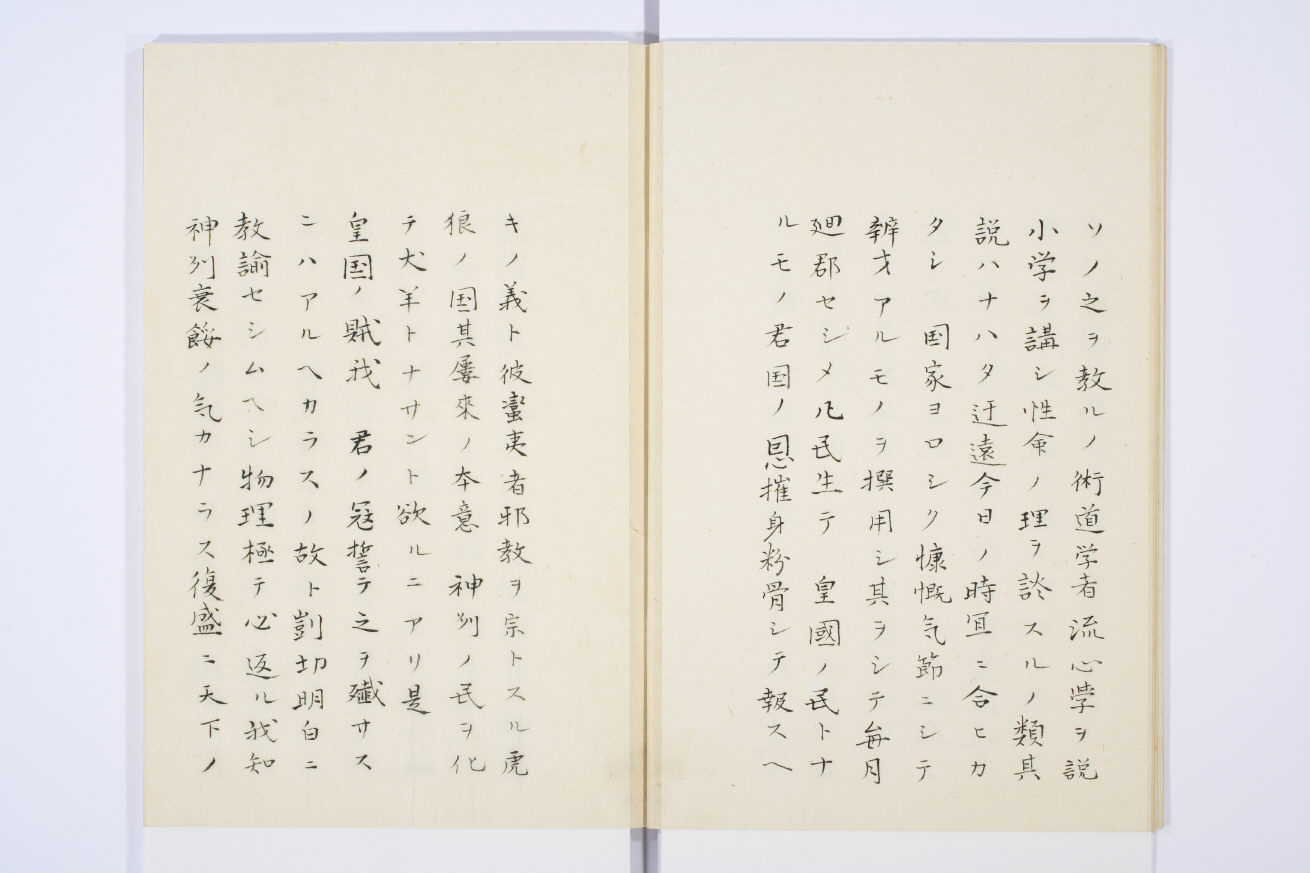 ソノ之ヲ教ルノ術道学者流心學ヲ説
小学ヲ講シ性命ノ理ヲ談スルノ類其
説ハナハタ迂遠今日ノ時宜ニ合ヒカ
タシ　国家ヨロシク慷慨気節ニシテ
辨才アルモノヲ撰用シ其ヲシテ毎月
廻郡セシメ凡民生テ　皇國ノ民トナ
ルモノ君国ノ恩摧身粉骨シテ報スヘ
キノ義ト彼蠻夷者邪教ヲ宗トスル虎
狼ノ国其屡來ノ本意　神州ノ民ヲ化
テ犬羊トナサント欲ルニアリ是
皇国ノ賊我　君ノ冦誓テ之ヲ殲サス
ニハアルヘカラスノ故ト剴切明白ニ
教諭セシムヘシ物理極テ必返ル我知
神州衰餒ノ気カナラス復盛ニ天下ノ